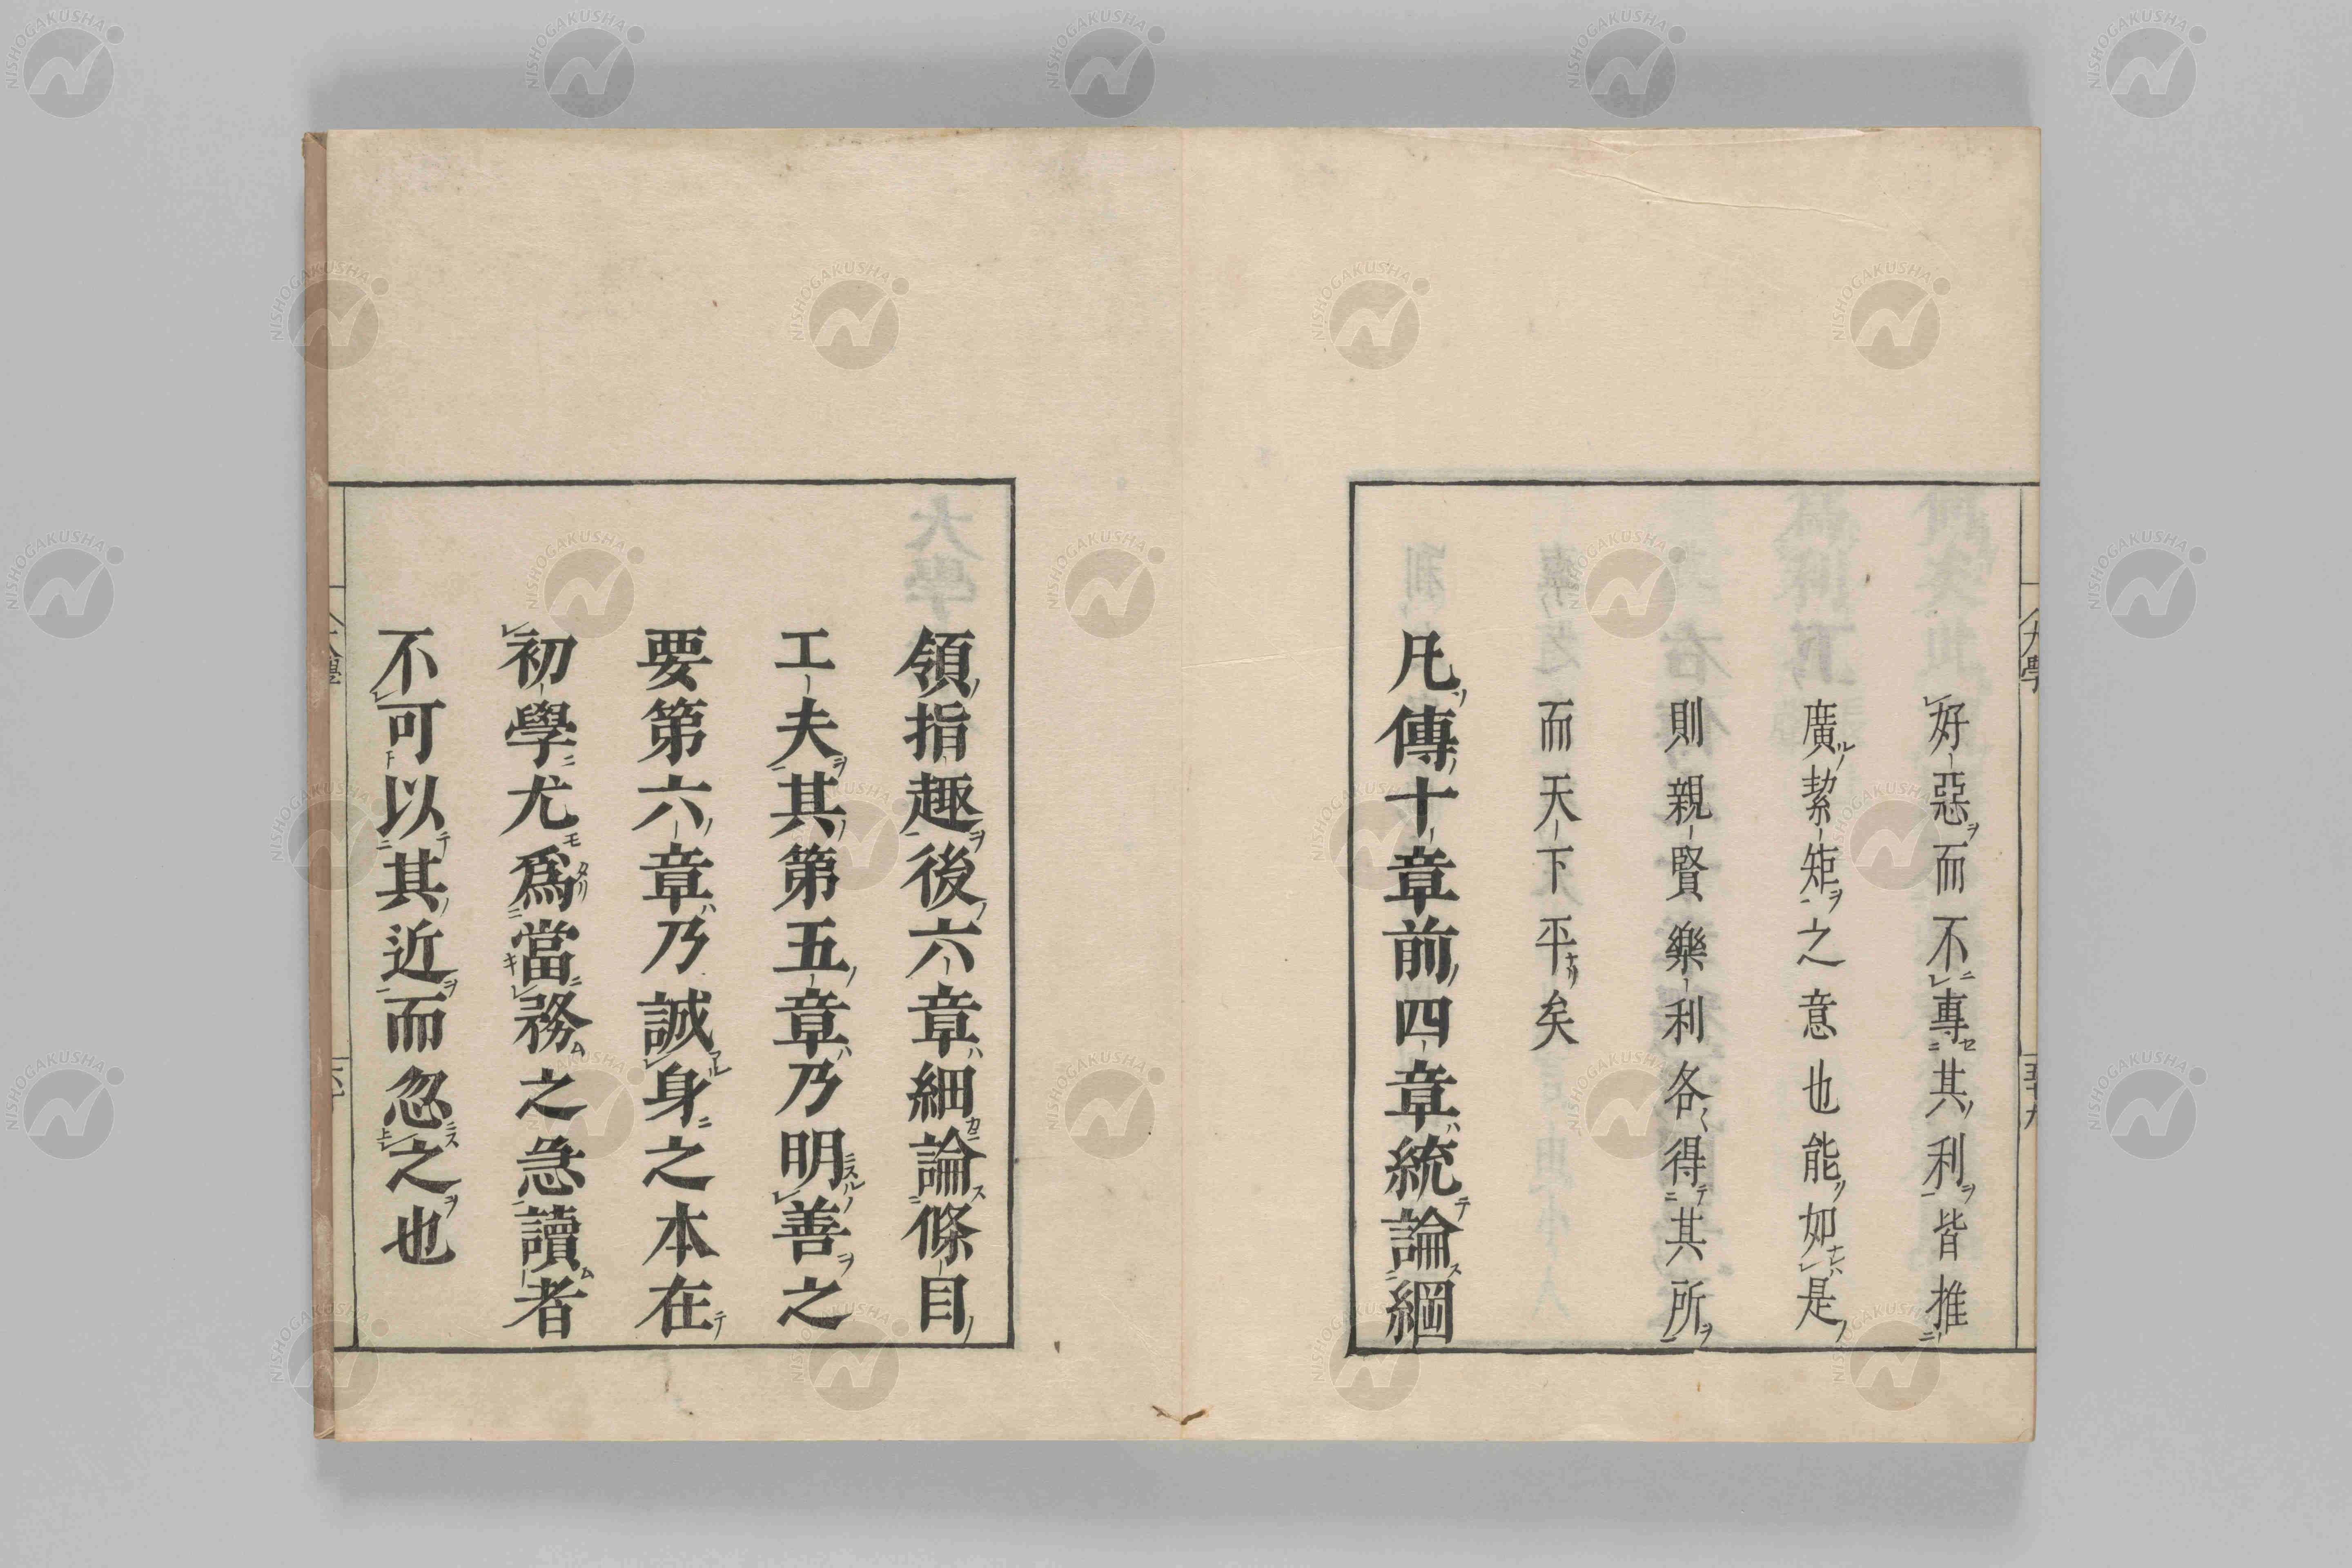 好惡而不專其利皆推
廣絜矩之意也能如是
則親賢樂利各得其所
而天下平矣
凡傳十章前四章統論綱
領指趣後六章細論條目
工夫其第五章乃明善之
要第六章乃誠身之本在
初學尤爲當務之急讀者
不可以其近而忽之也
大學
五十九
NISHOGAKUSHA